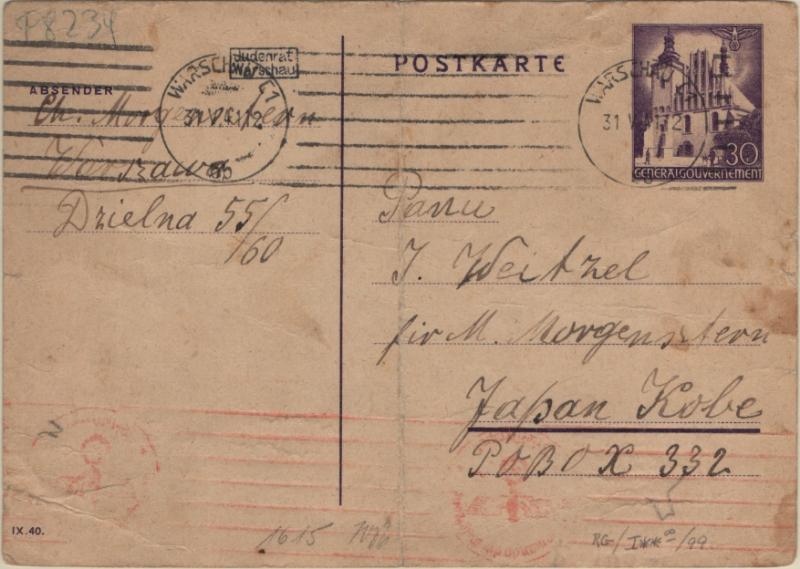 F8234
Judenrat
Warschau
POSTKARTE
WARSCHAU C1
31.V.41.12
WARSCHAU
31.V.41.12
ABSENDER
Ch. Morgenstern
Warszawa
Dzielna 55/
/60
30
GENERALGOUVERNEMENT
Panu
J. Weitzel
für M. Morgenstern
Japan Kobe
POBOX 332
IX.40.
1615